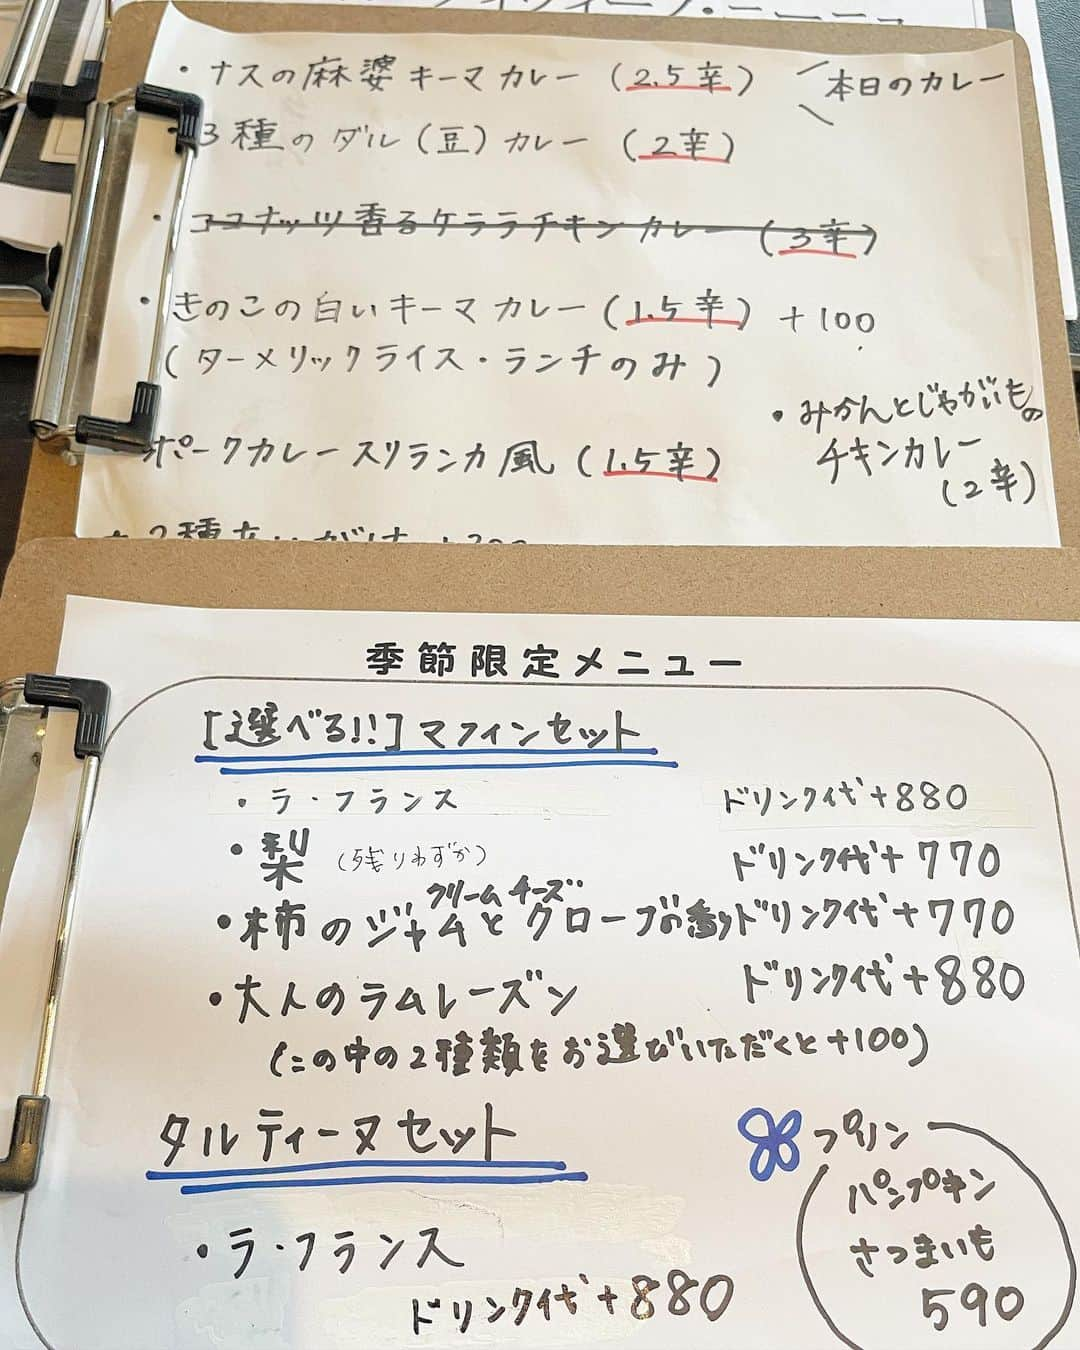 ・ナスの麻婆キーマカレー（2.5辛） 本日のカレー
・3種のダル（豆）カレー（2辛）
・ココナッツ香るケララチキンカレー（3辛）
・きのこの白いキーマカレー（1.5辛）+100
（ターメリックライス・ランチのみ）
・みかんとじゃがいもの
チキンカレー
（2辛）
ポークカレースリランカ風（1.5辛）
季節限定メニュー
[選べる!!]マフィンセット
・ラ・フランス ドリンク代+880
・梨（残りわずか） ドリンク代+770
クリームチーズ
・柿のジャムとクローブの香り ドリンク代+770
・大人のラムレーズン ドリンク代+880
（この中の2種類をお選びいただくと+100）
タルティーヌセット
・ラ・フランス
ドリンク代+880
プリン
パンプキン
さつまいも
590